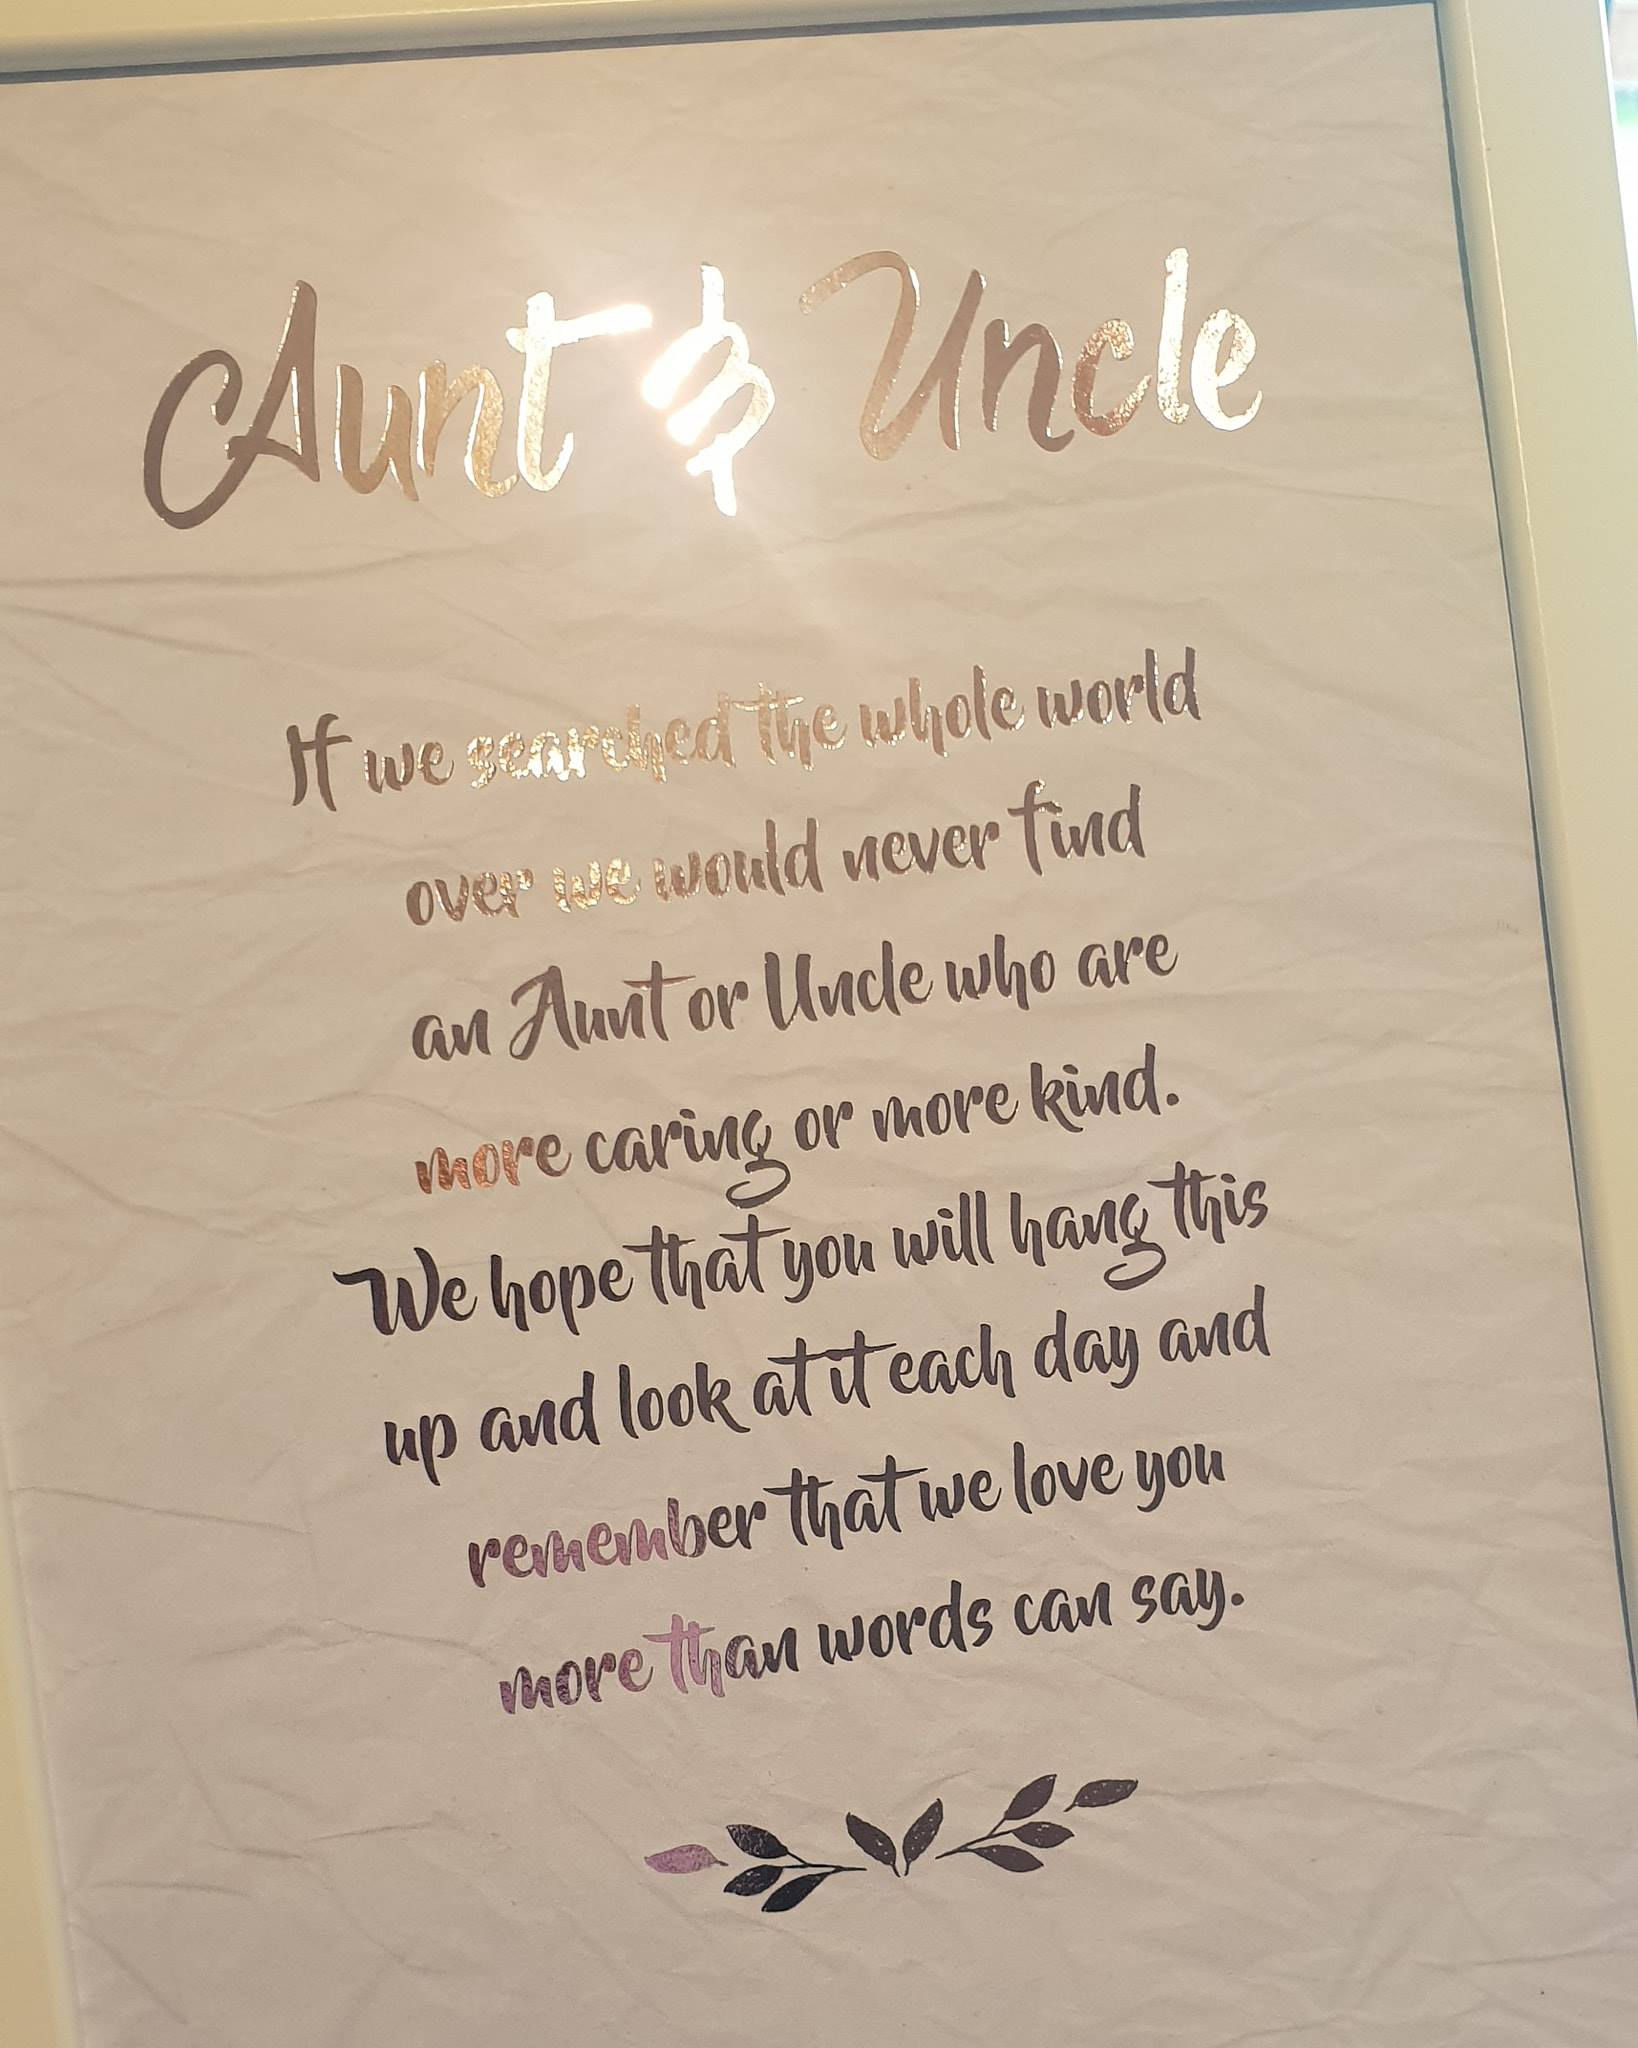 Aunt & Uncle
If we searched the whole world
over we would never find
an Aunt or Uncle who are
more caring or more kind.
We hope that you will hang this
up and look at it each day and
remember that we love you
more than words can say.